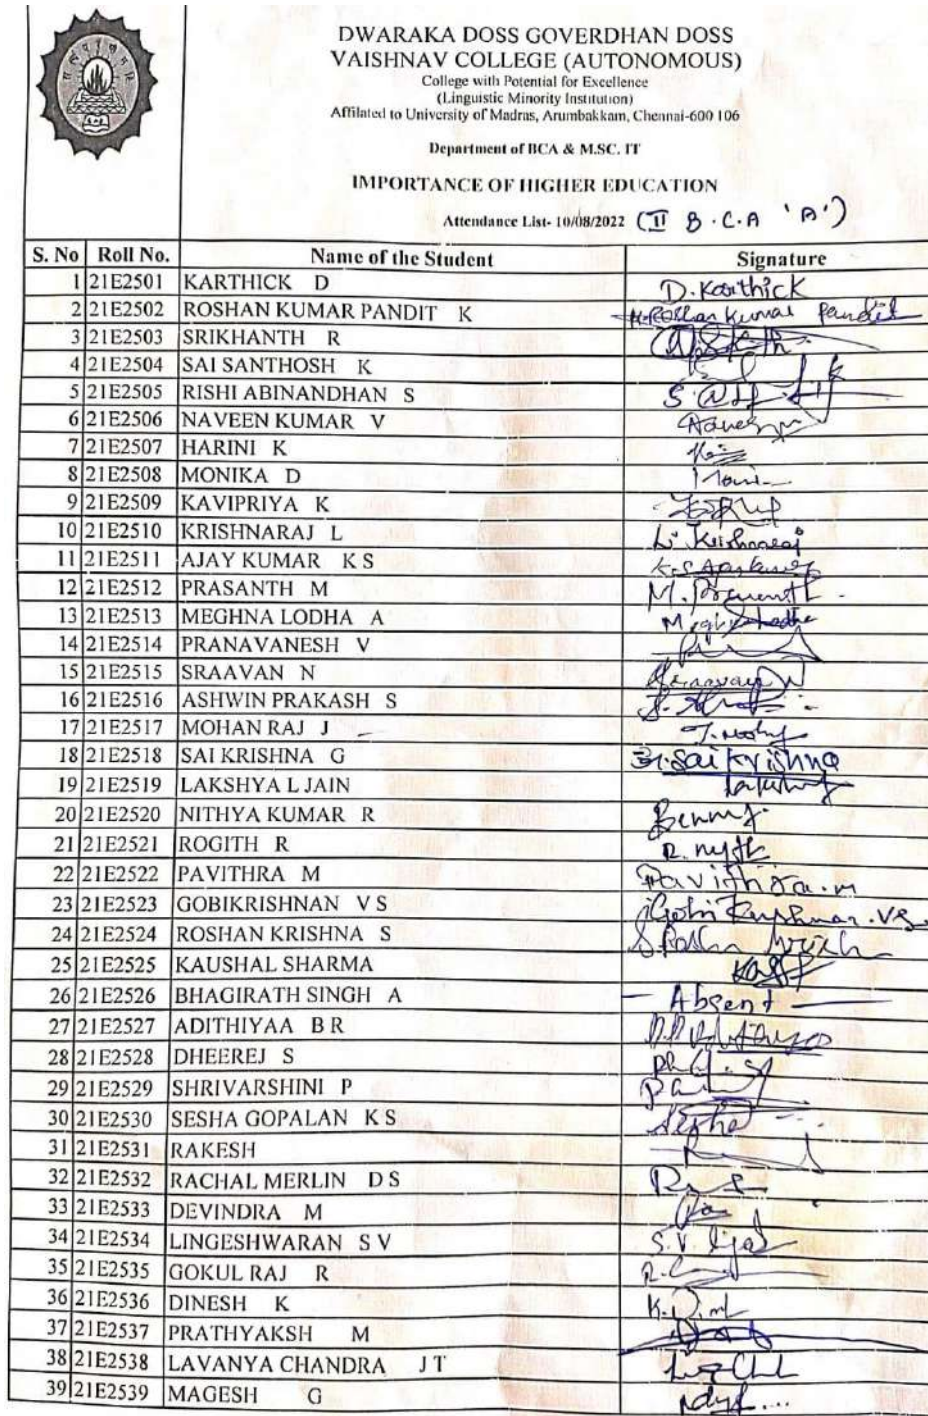 DWARAKA DOSS GOVERDHAN DOSS
VAISHNAV COLLEGE (AUTONOMOUS)
College with Potential for Excellence
(Linguistic Minority Institution)
Affilated to University of Madras, Arumbakkam, Chennai-600 106
Department of BCA & M.SC. IT
IMPORTANCE OF HIGHER EDUCATION
Attendance List- 10/08/2022 (II B.C.A 'A')
S. No Roll No. Name of the Student Signature
1 21E2501 KARTHICK D D. Karthick
2 21E2502 ROSHAN KUMAR PANDIT K K. Roshan Kumar Pandit
3 21E2503 SRIKHANTH R
4 21E2504 SAI SANTHOSH K
5 21E2505 RISHI ABINANDHAN S
6 21E2506 NAVEEN KUMAR V
7 21E2507 HARINI K
8 21E2508 MONIKA D
9 21E2509 KAVIPRIYA K
10 21E2510 KRISHNARAJ L L. Krishnaraj
11 21E2511 AJAY KUMAR K S
12 21E2512 PRASANTH M
13 21E2513 MEGHNA LODHA A
14 21E2514 PRANAVANESH V
15 21E2515 SRAAVAN N
16 21E2516 ASHWIN PRAKASH S
17 21E2517 MOHAN RAJ J
18 21E2518 SAI KRISHNA G G. Sai Krishna
19 21E2519 LAKSHYA L JAIN
20 21E2520 NITHYA KUMAR R
21 21E2521 ROGITH R
22 21E2522 PAVITHRA M Pavithra.m
23 21E2523 GOBIKRISHNAN V S
24 21E2524 ROSHAN KRISHNA S
25 21E2525 KAUSHAL SHARMA
26 21E2526 BHAGIRATH SINGH A - Absent -
27 21E2527 ADITHIYAA B R
28 21E2528 DHEEREJ S
29 21E2529 SHRIVARSHINI P
30 21E2530 SESHA GOPALAN K S
31 21E2531 RAKESH
32 21E2532 RACHAL MERLIN D S
33 21E2533 DEVINDRA M
34 21E2534 LINGESHWARAN S V
35 21E2535 GOKUL RAJ R
36 21E2536 DINESH K
37 21E2537 PRATHYAKSH M
38 21E2538 LAVANYA CHANDRA J T
39 21E2539 MAGESH G